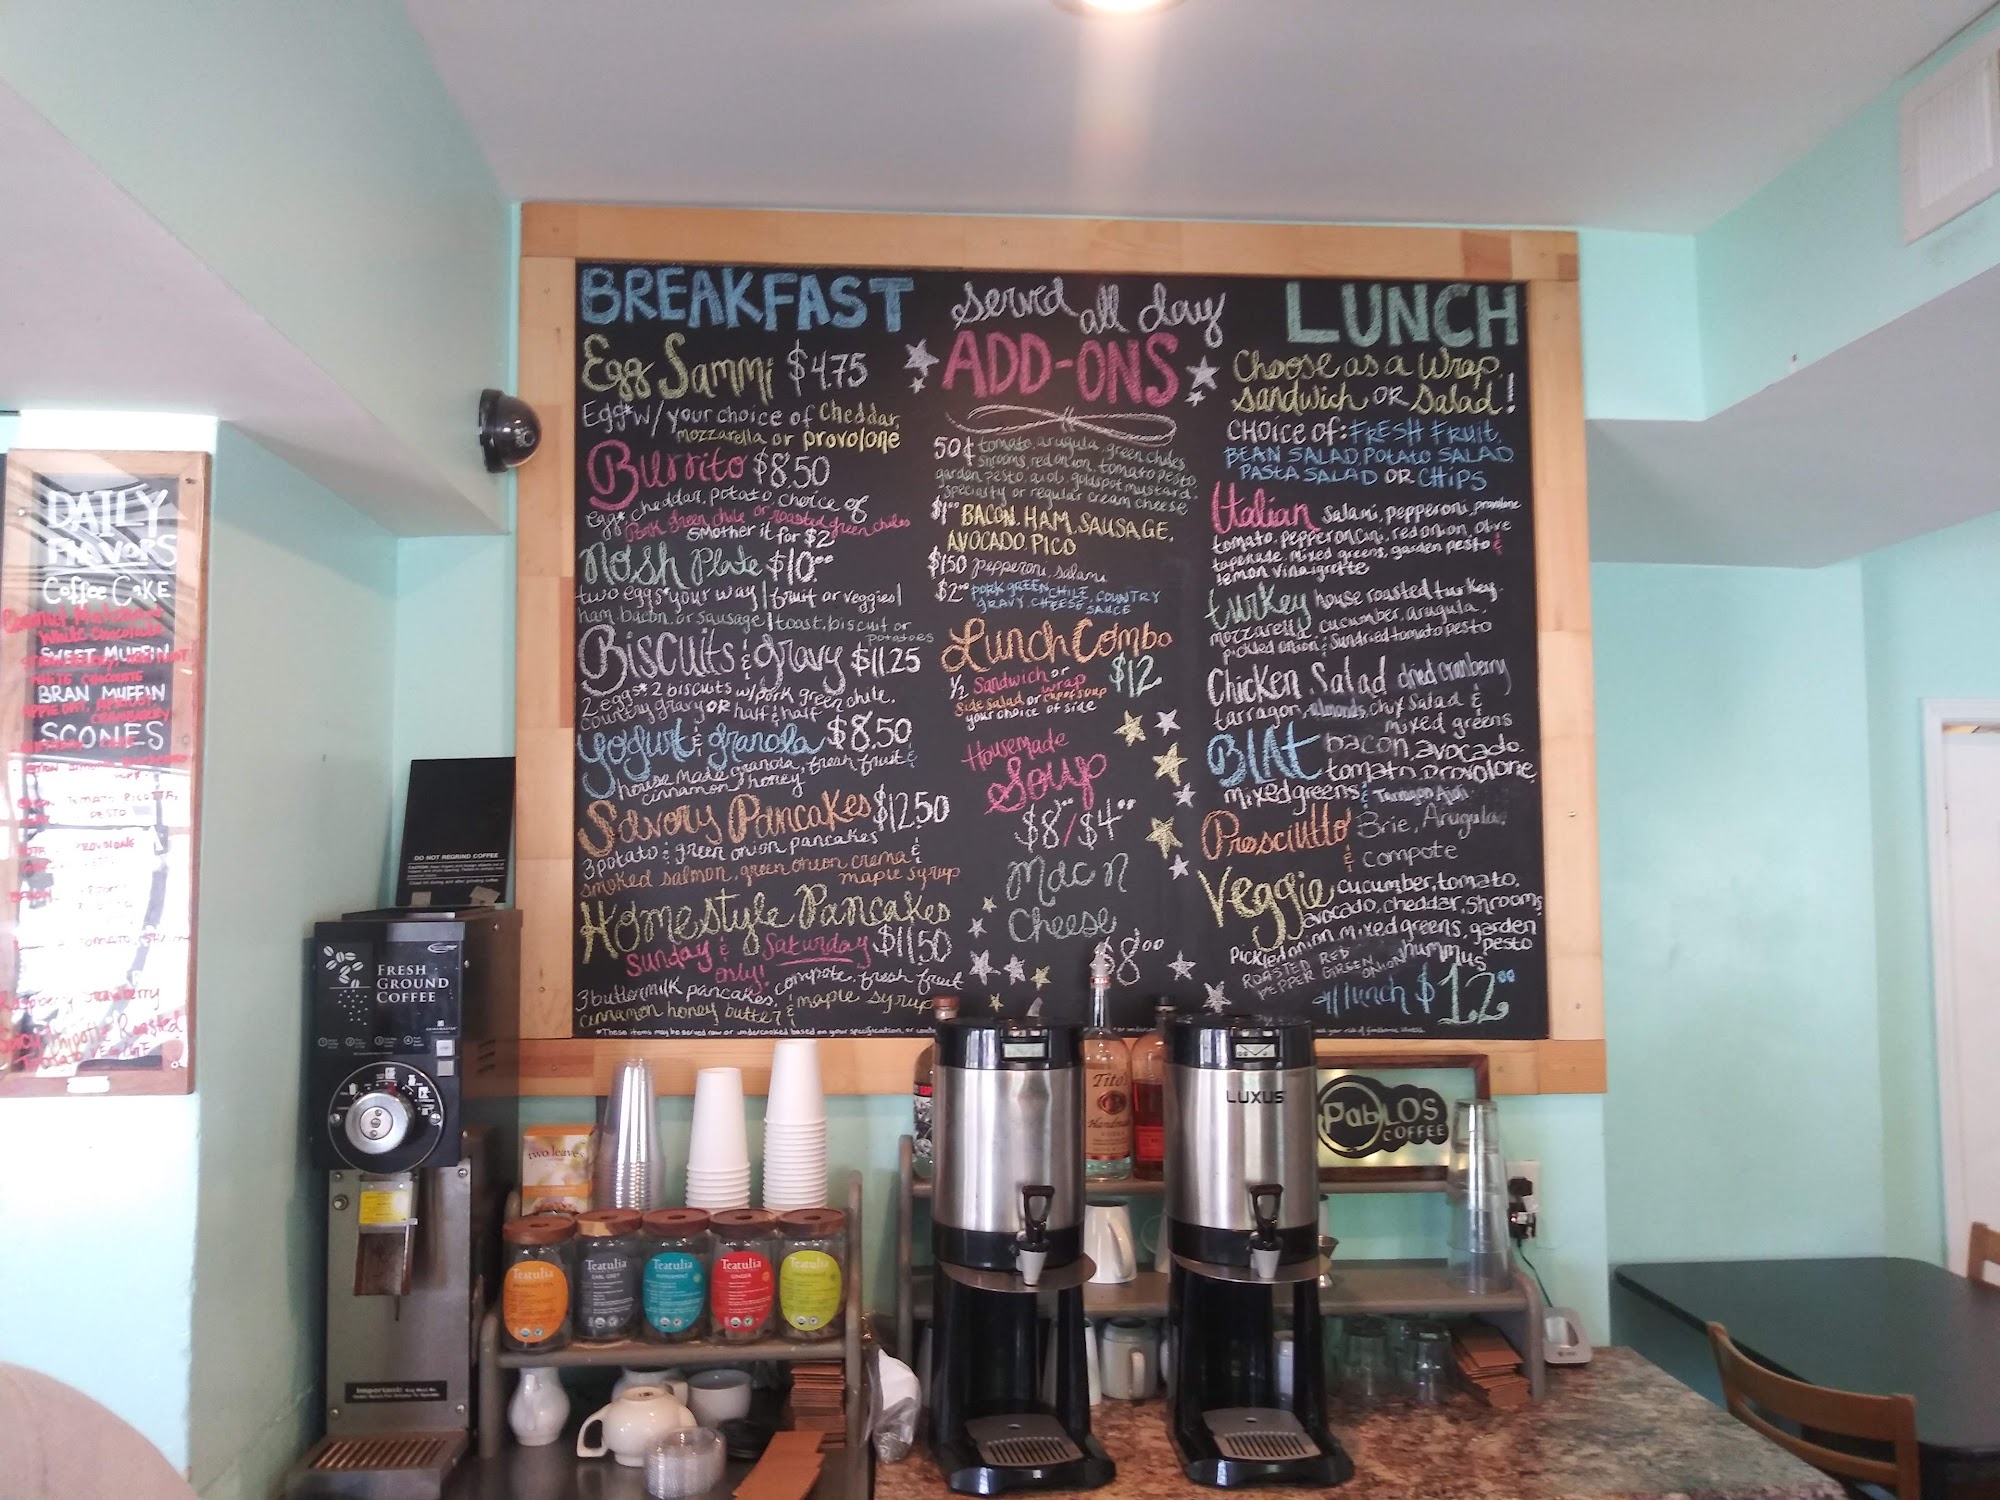 BREAKFAST
Egg Sammi $4.75
Egg* w/ your choice of cheddar,
mozzarella or provolone
Burrito $8.50
egg*, cheddar, potato, choice of
Pork green chile or roasted green chiles
smother it for $2
Nosh Plate $10.00
two eggs* your way | fruit or veggies |
ham, bacon, or sausage | toast, biscuit or
potatoes
Biscuits & gravy $11.25
2 eggs* 2 biscuits w/ pork green chile,
country gravy OR half & half
Yogurt & granola $8.50
house made granola, fresh fruit &
cinnamon honey
Savory Pancakes $12.50
3 potato & green onion pancakes
smoked salmon, green onion crema &
maple syrup
Homestyle Pancakes
Sunday & Saturday $11.50
only!
compote, fresh fruit
3 buttermilk pancakes,
cinnamon honey butter & maple syrup
*These items may be served raw or undercooked based on your specification, or
served all day
ADD-ONS
50¢ tomato, arugula, green chiles
shrooms, red onion, tomato pesto,
garden pesto, aioli, goldspot mustard,
specialty or regular cream cheese
$1.00 BACON, HAM, SAUSAGE,
AVOCADO, PICO
$1.50 pepperoni, salami
$2.00 PORK GREEN CHILE, COUNTRY
GRAVY, CHEESE SAUCE
Lunch Combo
$12
1/2 Sandwich or
wrap
Side Salad or cup of soup
your choice of side
Housemade
Soup
$8.00/$4.00
Mac N
Cheese
$8.00
LUNCH
Choose as a Wrap,
Sandwich OR Salad!
CHOICE OF: FRESH FRUIT,
BEAN SALAD, POTATO SALAD
PASTA SALAD OR CHIPS
Italian salami, pepperoni, provolone
tomato, pepperoncini, red onion, olive
tapenade, mixed greens, garden pesto &
lemon vinaigrette
turkey house roasted turkey,
mozzarella, cucumber, arugula,
pickled onion & sundried tomato pesto
Chicken Salad dried cranberry
tarragon, almonds, chx salad &
mixed greens
BLAT bacon, avocado,
tomato, provolone,
mixed greens & Tarragon Aioli
Prosciutto Brie, Arugula,
& compote
Veggie cucumber, tomato,
avocado, cheddar, shrooms,
pickled onion, mixed greens, garden
pesto
hummus
ROASTED RED
PEPPER GREEN
ONION
All lunch $12.00
DAILY
FLAVORS
Coffee Cake
White Chocolate
SWEET MUFFIN
WHITE CHOCOLATE
BRAN MUFFIN
APRICOT,
CRANBERRY
SCONES
TOMATO, RICOTTA,
PESTO
PROVOLONE
TOMATO,
Raspberry
Spicy Chipotle Roasted
Tomato
DO NOT REGRIND COFFEE
FRESH
GROUND
COFFEE
Important:
two leaves
Teatulia
Teatulia
EARL GREY
Teatulia
PEPPERMINT
Teatulia
GINGER
Teatulia
Tito's
Handmade
LUXUS
PabLOS
COFFEE